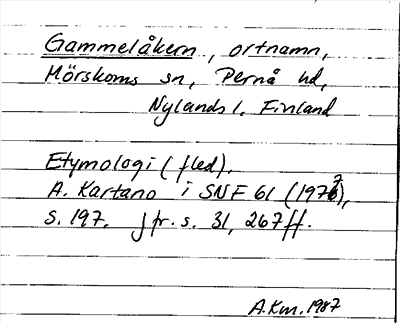 Gammelåkern, ortnamn,
Mörskoms sn, Pernå hd,
Nylands l. Finland
Etymologi (fled).
A. Kartano i SNF 61 (1977),
s. 197. jfr. s. 31, 267 ff.
A.Km. 1987